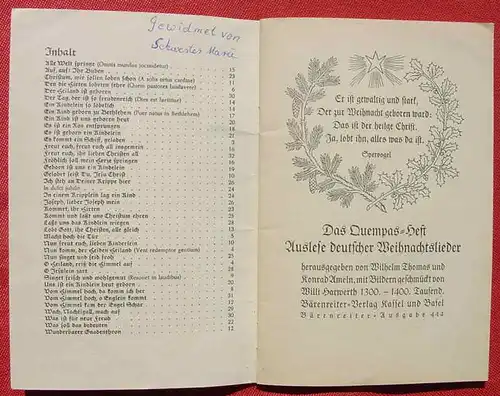 Gewidmet von
Schwester Maria
Inhalt
Alle Welt springe (Omnis mundus jocundetur) 15
Auf, auf! Ihr Buben 23
Christum, wir sollen loben schon (A solis ortus cardine) 11
Den die Hirten lobeten sehre (Quem pastores laudavere)
Der Heiland ist geboren 30
Der Tag, der ist so freudenreich (Dies est laetitiae)
Ein Kindelein so löbelich
Ein Kind geborn zu Bethlehem (Puer natus in Bethlehem)
Ein Kind ist uns geboren heut
Es ist ein Ros entsprungen
Es ist geborn ein Kindelein
Es kommt ein Schiff, geladen
Freut euch, freut euch all insgemein
Freut euch, ihr lieben Christen all
Fröhlich soll mein Herze springen
Geborn ist uns ein Kindelein
Gelobet seist Du, Jesu Christ
Ich steh an Deiner Krippe hier
In dulci jubilo
In einem Kripplein lag ein Kind
Joseph, lieber Joseph mein
Kommet, ihr Hirten
Kommt und laßt uns Christum ehren
Laßt uns das Kindlein wiegen
Lobt Gott, ihr Christen, alle gleich
Macht hoch die Tür
Nun freut euch, lieben Kinderlein
Nun komm, der Heiden Heiland (Veni redemptor gentium)
Nun singet und seid froh
O Heiland, reiß die Himmel auf
O Jesulein zart
Singet frisch und wohlgemut (Resonet in laudibus)
Uns ist ein Kindelein heut geborn
Vom Himmel hoch, da komm ich her
Vom Himmel hoch, o Englein kommt
Vom Himmel kam der Engel Schar
Wach, Nachtigall, wach auf
Was ist für neue Freud
Was soll das bedeuten 22
Wunderbarer Gnadenthron 12
Er ist gewaltig und stark,
Der zur Weihnacht geboren ward:
Das ist der heilge Christ.
Ja, lobt ihn, alles was da ist.
Spervogel
Das Quempas-Heft
Auslese deutscher Weihnachtslieder
herausgegeben von Wilhelm Thomas und
Konrad Ameln, mit Bildern geschmückt von
Willi Harwerth 1300. - 1400. Tausend.
Bärenreiter-Verlag Kassel und Basel
Bärenreiter-Ausgabe 444